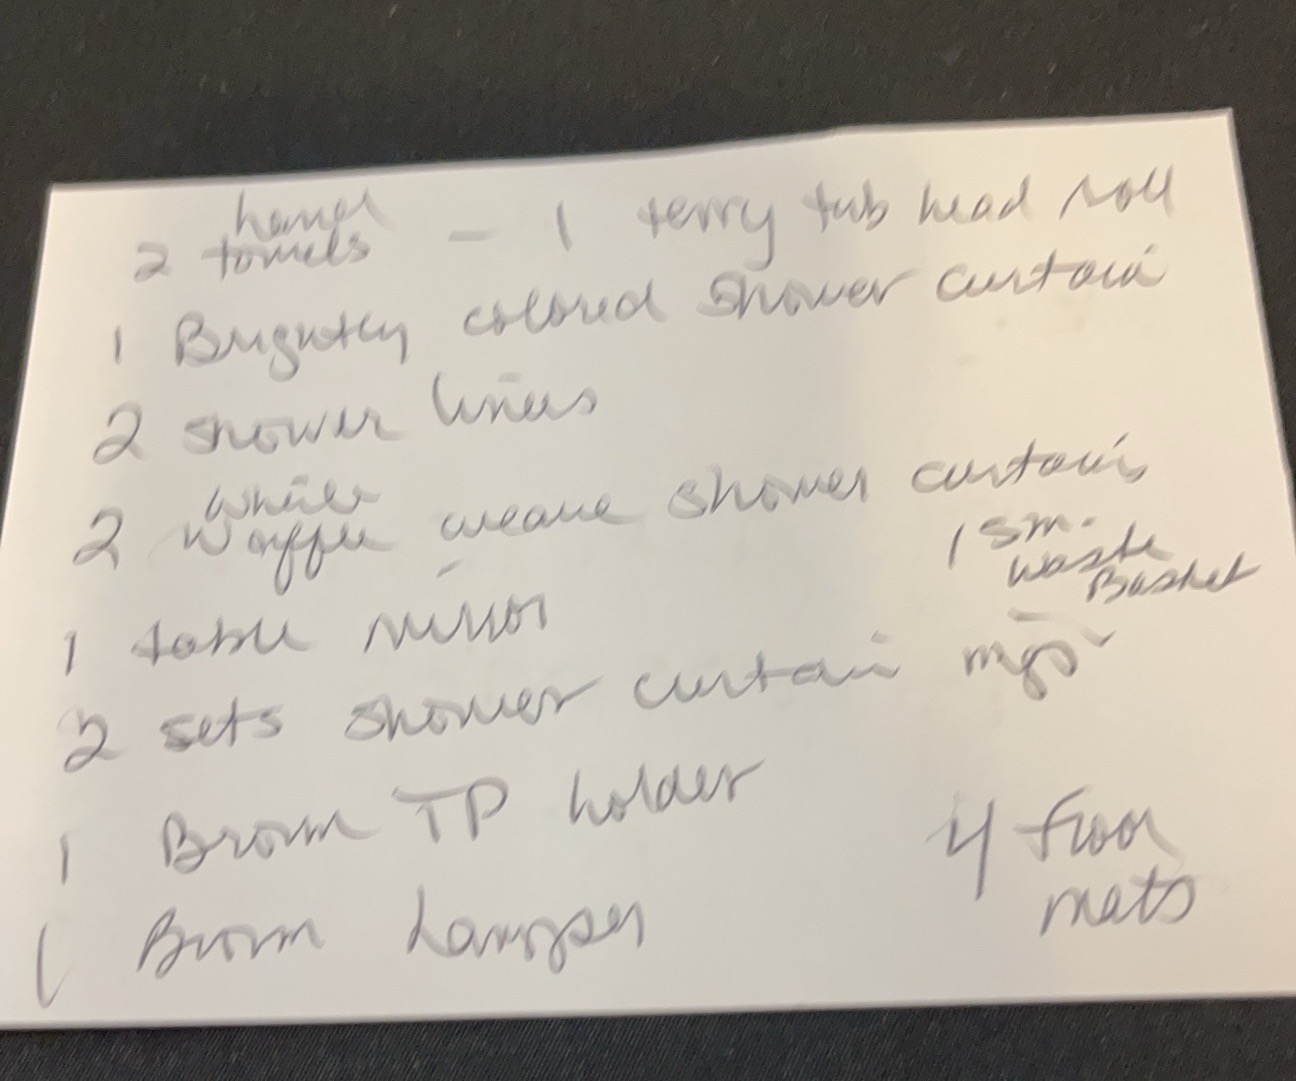 2 hand towels - 1 terry tub head roll
1 Brightly colored shower curtain
2 shower liners
2 white waffle weave shower curtains
1 sm. waste Basket
1 table mirror
2 sets shower curtain rings
1 Brown TP holder
4 floor mats
1 Brown hamper